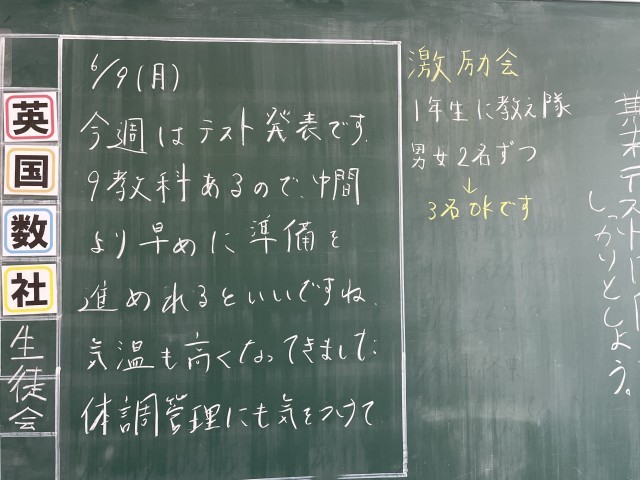 英
国
数
社
生徒会
6/9(月)
今週はテスト発表です。
9教科あるので、中間
より早めに準備を
進めれるといいですね。
気温も高くなってきました。
体調管理にも気をつけて
激励会
1年生に教え隊
男女2名ずつ
↓
3名OKです
期末テストに
しっかりとしよう。